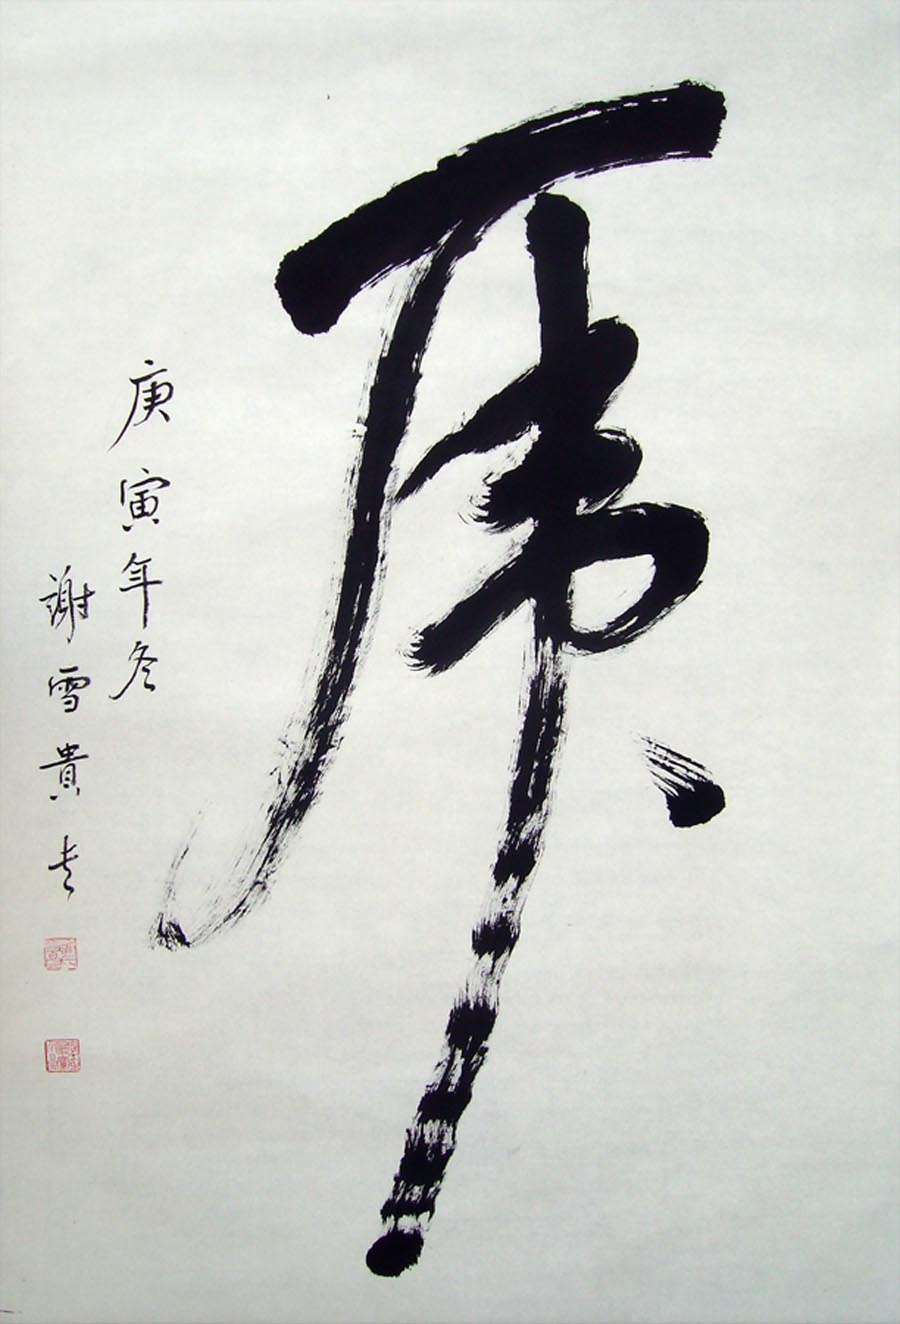 虎
庚寅年冬
謝雪貴書